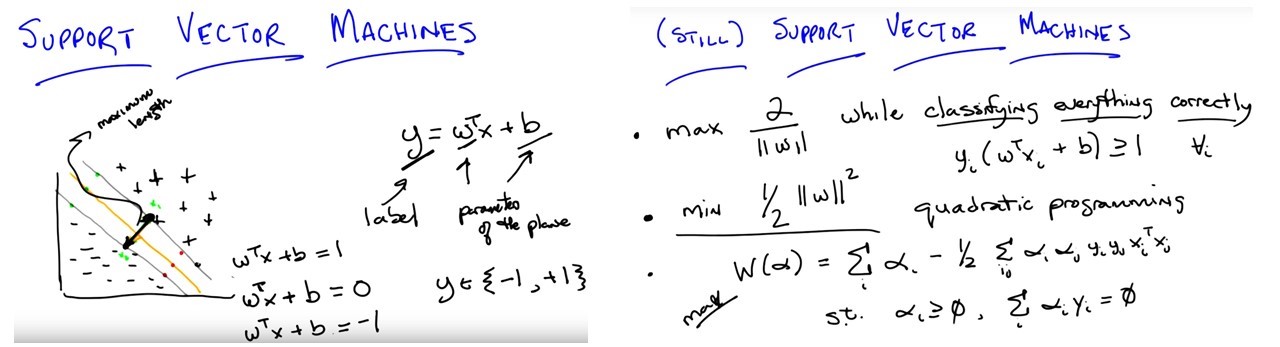 SUPPORT VECTOR MACHINES
maximum
length
y = wᵀx + b
label
parameters
of the plane
wᵀx + b = 1
wᵀx + b = 0
wᵀx + b = -1
y ∈ {-1, +1}
(STILL) SUPPORT VECTOR MACHINES
• max 2/||w|| while classifying everything correctly
yᵢ(wᵀxᵢ + b) ≥ 1 ∀ᵢ
• min 1/2 ||w||² quadratic programming
• max W(α) = Σᵢ αᵢ - 1/2 Σᵢⱼ αᵢ αⱼ yᵢ yⱼ xᵢᵀxⱼ
s.t. αᵢ ≥ 0, Σᵢ αᵢyᵢ = 0